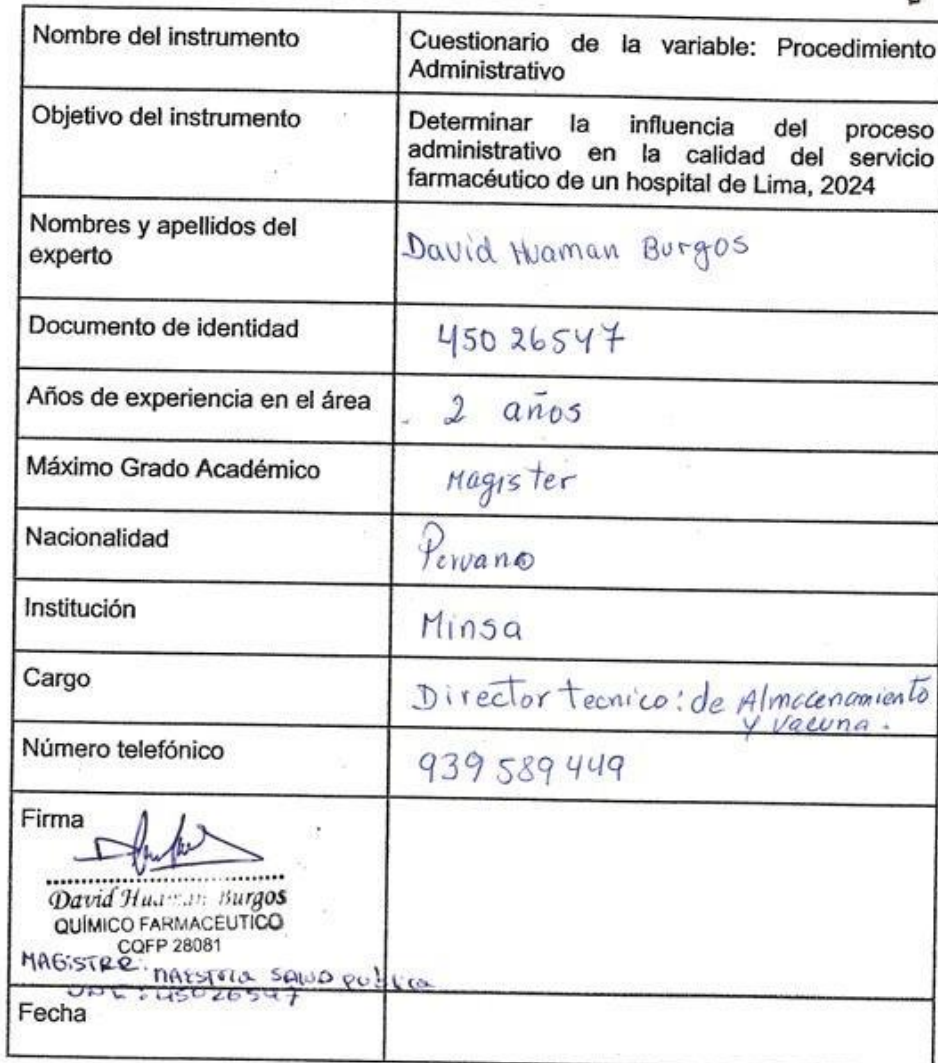 Nombre del instrumento
Cuestionario de la variable: Procedimiento
Administrativo
Objetivo del instrumento
Determinar la influencia del proceso
administrativo en la calidad del servicio
farmacéutico de un hospital de Lima, 2024
Nombres y apellidos del
experto
David Huaman Burgos
Documento de identidad
45026547
Años de experiencia en el área
2 años
Máximo Grado Académico
Magister
Nacionalidad
Peruano
Institución
Minsa
Cargo
Director tecnico: de Almacenamiento
y vacuna.
Número telefónico
939 589 449
Firma
David Burgos
QUÍMICO FARMACÉUTICO
CQFP 28081
MAGISTER: MAESTRIA SALUD publica
45026547
Fecha